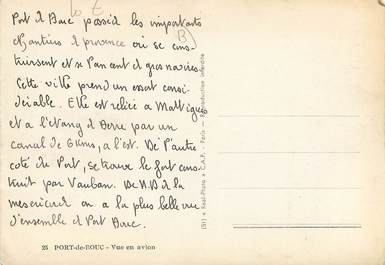 Port de Bouc possède les importants
chantiers de provence où se cons-
truisent et se lancent de gros navires.
Cette ville prend un essort consi-
dérable. Elle est reliée à Martigues
et à l'étang de Berre par un
canal de 6 kms, à l'est. De l'autre
coté du Port, se trouve le fort cons-
truit par Vauban. De N.D de la
mesericord on a la plus belle vue
d'ensemble de Port Bouc.
25 PORT-de-BOUC - Vue en avion
(51) « Real-Photo » C.A.P. - Paris - Reproduction interdite